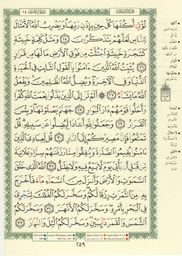 تُؤْتِىٓ أُكُلَهَا كُلَّ حِينٍۭ بِإِذْنِ رَبِّهَا ۗ وَيَضْرِبُ ٱللَّهُ ٱلْأَمْثَالَ
لِلنَّاسِ لَعَلَّهُمْ يَتَذَكَّرُونَ ٢٥ وَمَثَلُ كَلِمَةٍ خَبِيثَةٍ
كَشَجَرَةٍ خَبِيثَةٍ ٱجْتُثَّتْ مِن فَوْقِ ٱلْأَرْضِ مَا لَهَا مِن قَرَارٍ
٢٦ يُثَبِّتُ ٱللَّهُ ٱلَّذِينَ ءَامَنُوا۟ بِٱلْقَوْلِ ٱلثَّابِتِ فِى ٱلْحَيَوٰةِ
ٱلدُّنْيَا وَفِى ٱلْءَاخِرَةِ ۖ وَيُضِلُّ ٱللَّهُ ٱلظَّٰلِمِينَ ۚ وَيَفْعَلُ
ٱللَّهُ مَا يَشَآءُ ٢٧ ۞ أَلَمْ تَرَ إِلَى ٱلَّذِينَ بَدَّلُوا۟ نِعْمَتَ ٱللَّهِ كُفْرًا
وَأَحَلُّوا۟ قَوْمَهُمْ دَارَ ٱلْبَوَارِ ٢٨ جَهَنَّمَ يَصْلَوْنَهَا ۖ وَبِئْسَ
ٱلْقَرَارُ ٢٩ وَجَعَلُوا۟ لِلَّهِ أَندَادًا لِّيُضِلُّوا۟ عَن سَبِيلِهِۦ ۗ قُلْ
تَمَتَّعُوا۟ فَإِنَّ مَصِيرَكُمْ إِلَى ٱلنَّارِ ٣٠ قُل لِّعِبَادِىَ ٱلَّذِينَ
ءَامَنُوا۟ يُقِيمُوا۟ ٱلصَّلَوٰةَ وَيُنفِقُوا۟ مِمَّا رَزَقْنَٰهُمْ سِرًّا وَعَلَانِيَةً
مِّن قَبْلِ أَن يَأْتِىَ يَوْمٌ لَّا بَيْعٌ فِيهِ وَلَا خِلَٰلٌ ٣١ ٱللَّهُ ٱلَّذِى
خَلَقَ ٱلسَّمَٰوَٰتِ وَٱلْأَرْضَ وَأَنزَلَ مِنَ ٱلسَّمَآءِ مَآءً فَأَخْرَجَ
بِهِۦ مِنَ ٱلثَّمَرَٰتِ رِزْقًا لَّكُمْ ۖ وَسَخَّرَ لَكُمُ ٱلْفُلْكَ لِتَجْرِىَ
فِى ٱلْبَحْرِ بِأَمْرِهِۦ ۖ وَسَخَّرَ لَكُمُ ٱلْأَنْهَٰرَ ٣٢ وَسَخَّرَ لَكُمُ
ٱلشَّمْسَ وَٱلْقَمَرَ دَآئِبَيْنِ ۖ وَسَخَّرَ لَكُمُ ٱلَّيْلَ وَٱلنَّهَارَ ٣٣
٢٥٩